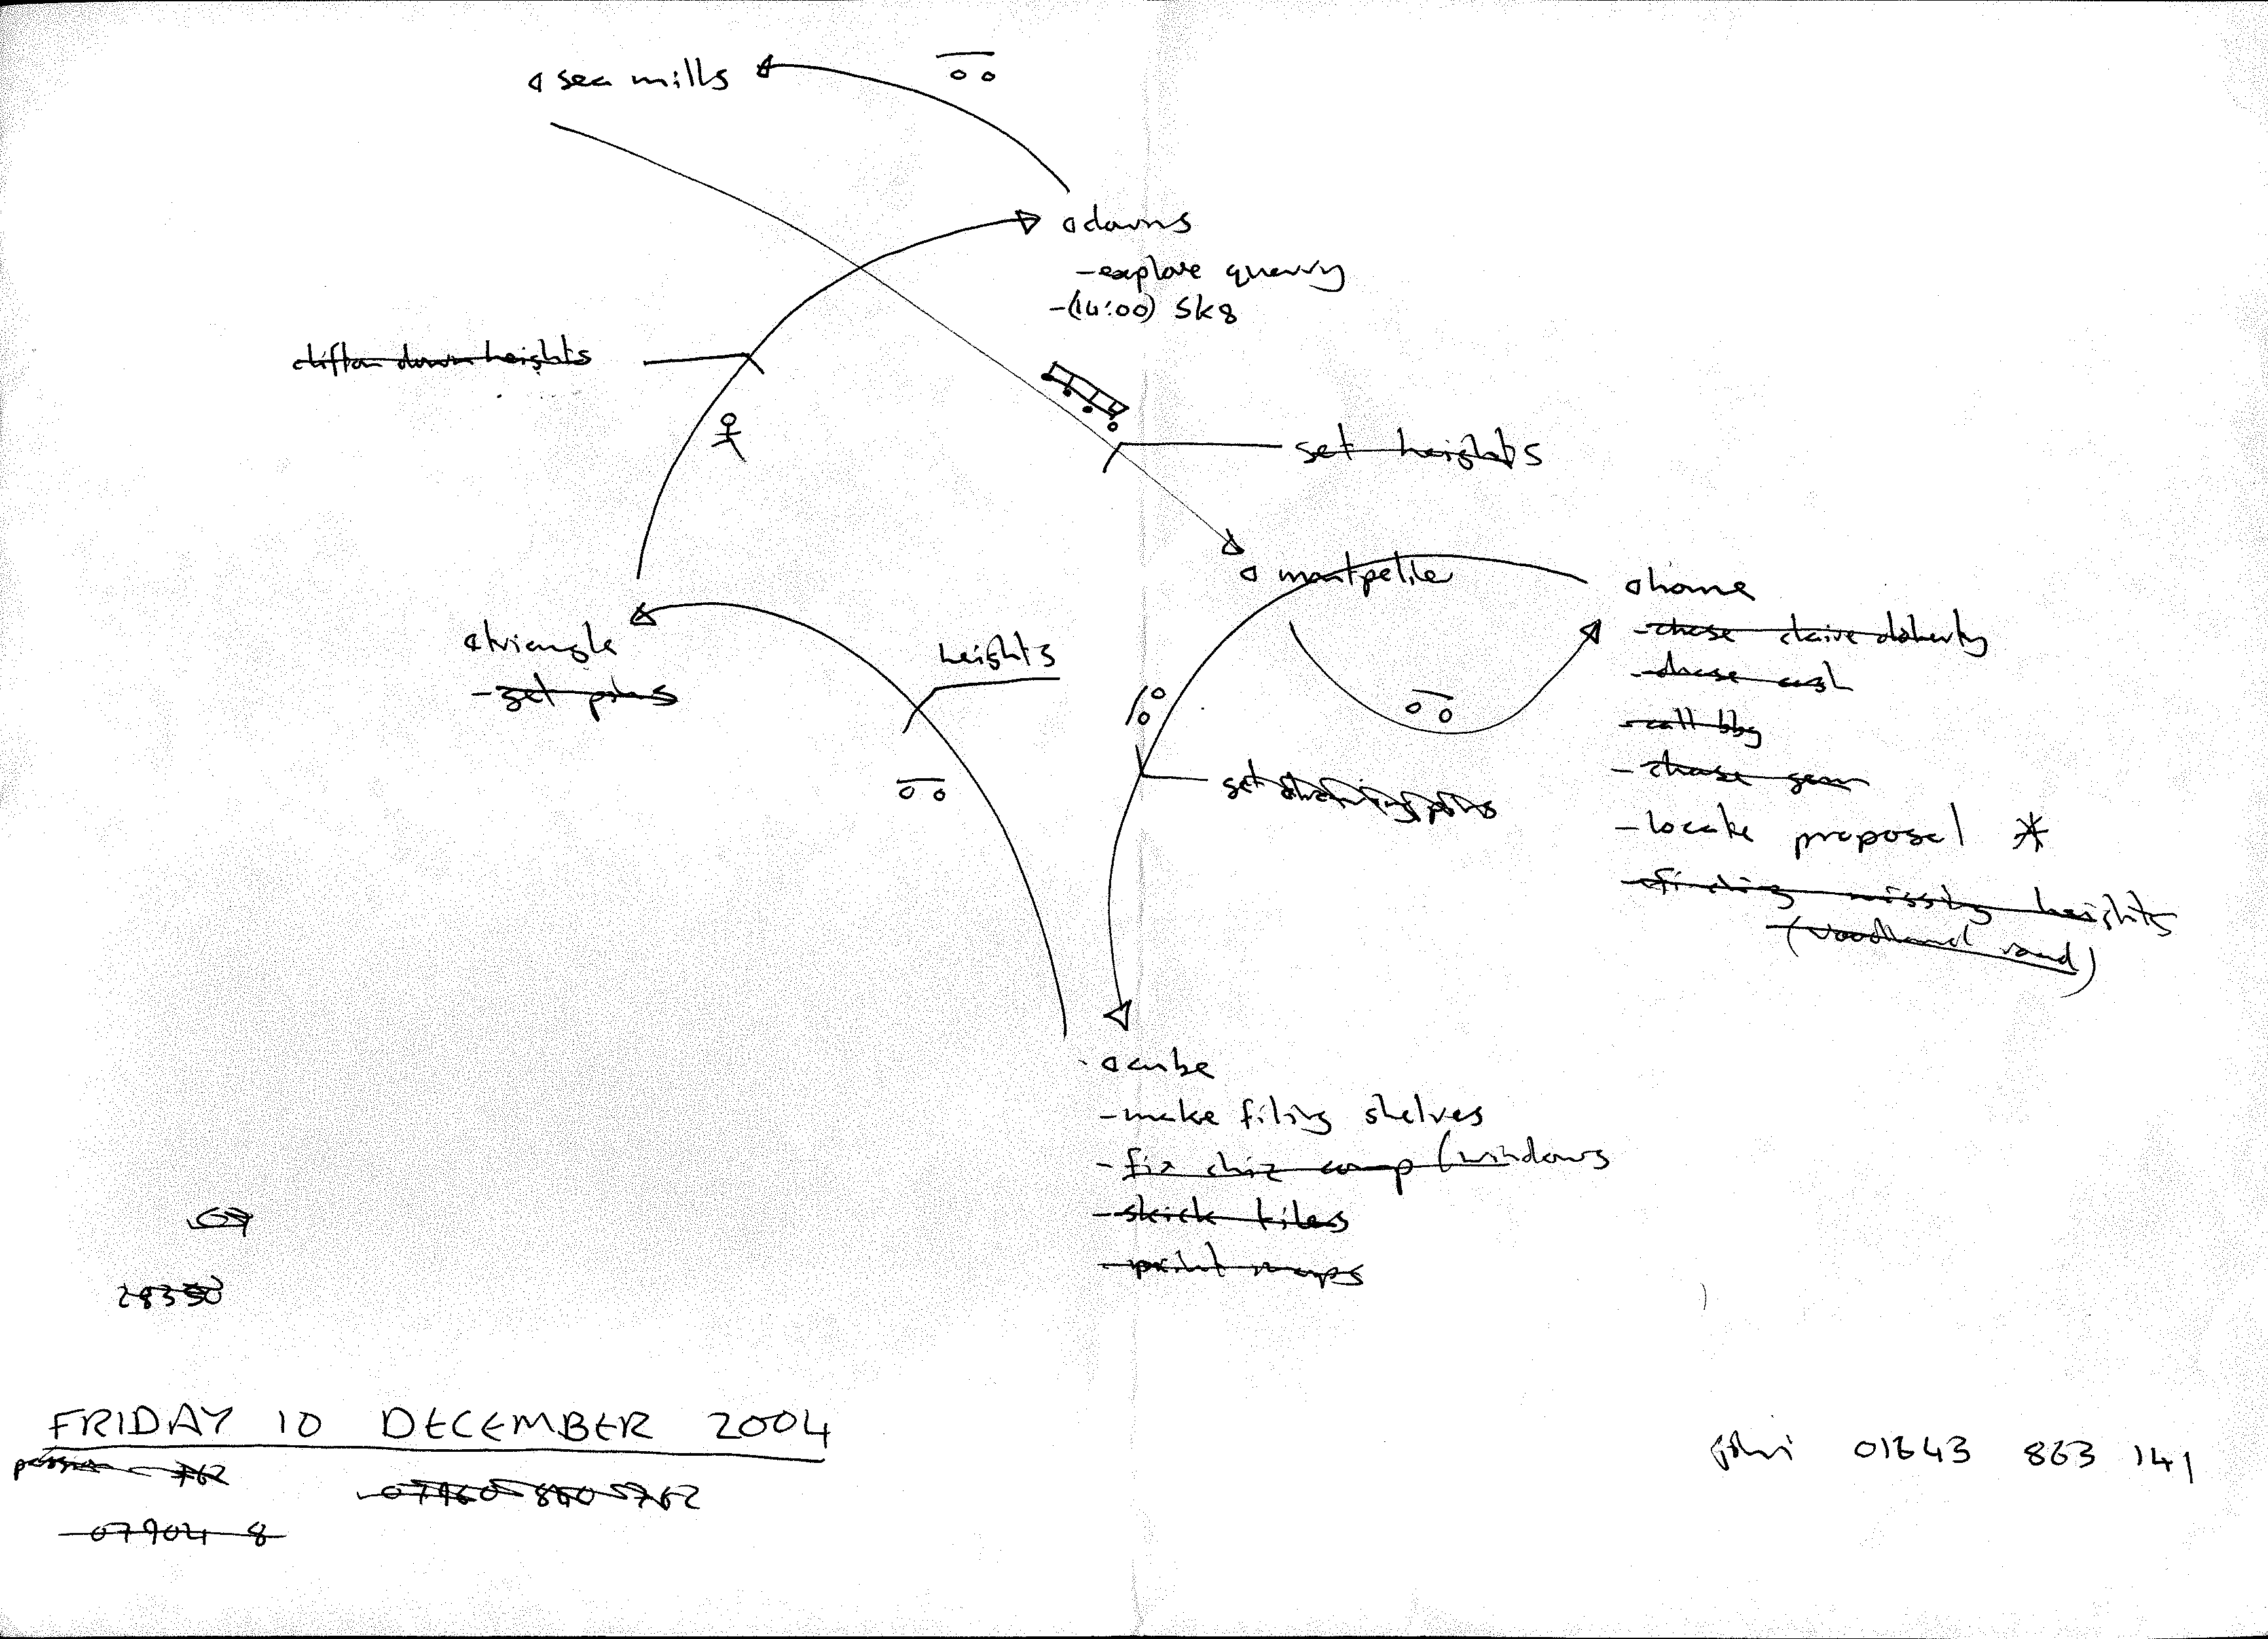 sea mills
downs
- explore quarry
- (14:00) sk8
clifton down heights
get heights
montpelier
home
- chase claire doherty
- chase cash
- call bbg
- chase
- locate proposal *
- finding missing heights
(woodland road)
triangle
- get
heights
get
cube
- make filing shelves
- fix chiz comp (windows
- tiles
- print maps
07
28350
FRIDAY 10 DECEMBER 2004
762
07960 860 5762
07904 8
01643 863 141